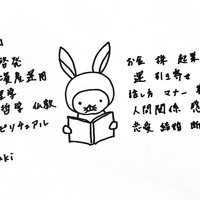 啓発
資産運用
理学
哲学 仏教
ピリチュアル
aki
お金 株 起業
運 引き寄せ
話し方 マナー
人間関係 感
恋愛 結婚 断